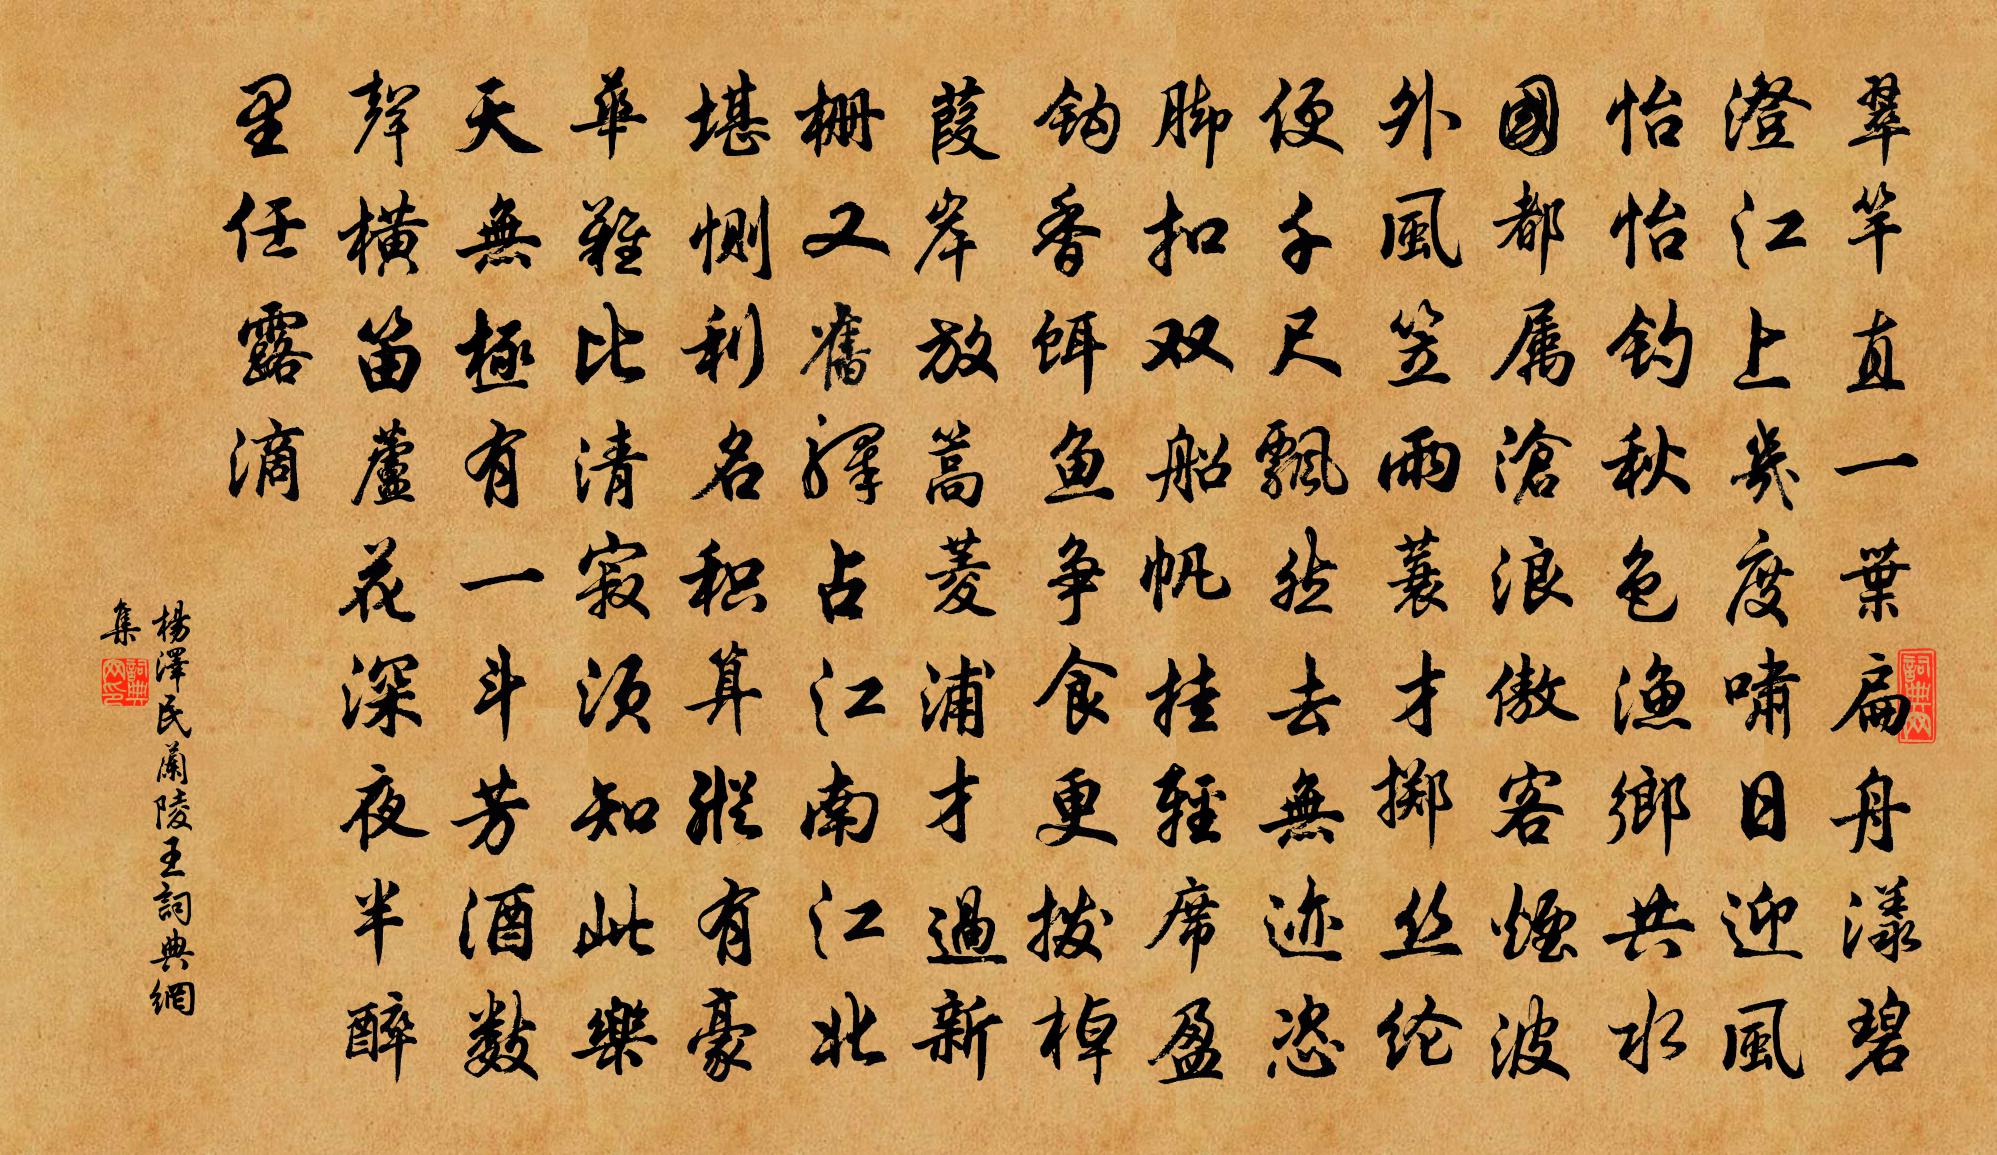 翠竿直一葉扁舟漾碧
澄江上幾度嘯日迎風
怡怡釣秋色漁鄉共水
國都属滄浪傲客煙波
外風笠雨蓑才掷丝纶
便千尺飄然去無迹恣
脚扣双船帆挂輕席盈
鈎香饵鱼争食更拨棹
葭岸放篙菱浦才過新
栅又舊驛占江南江北
堪惻利名积算縱有豪
華難比清寂须知此樂
天無極有一斗芳酒数
聲橫笛蘆花深夜半醉
里任露滴
楊澤民蘭陵王詞典網
集
詞典网
詞典网印